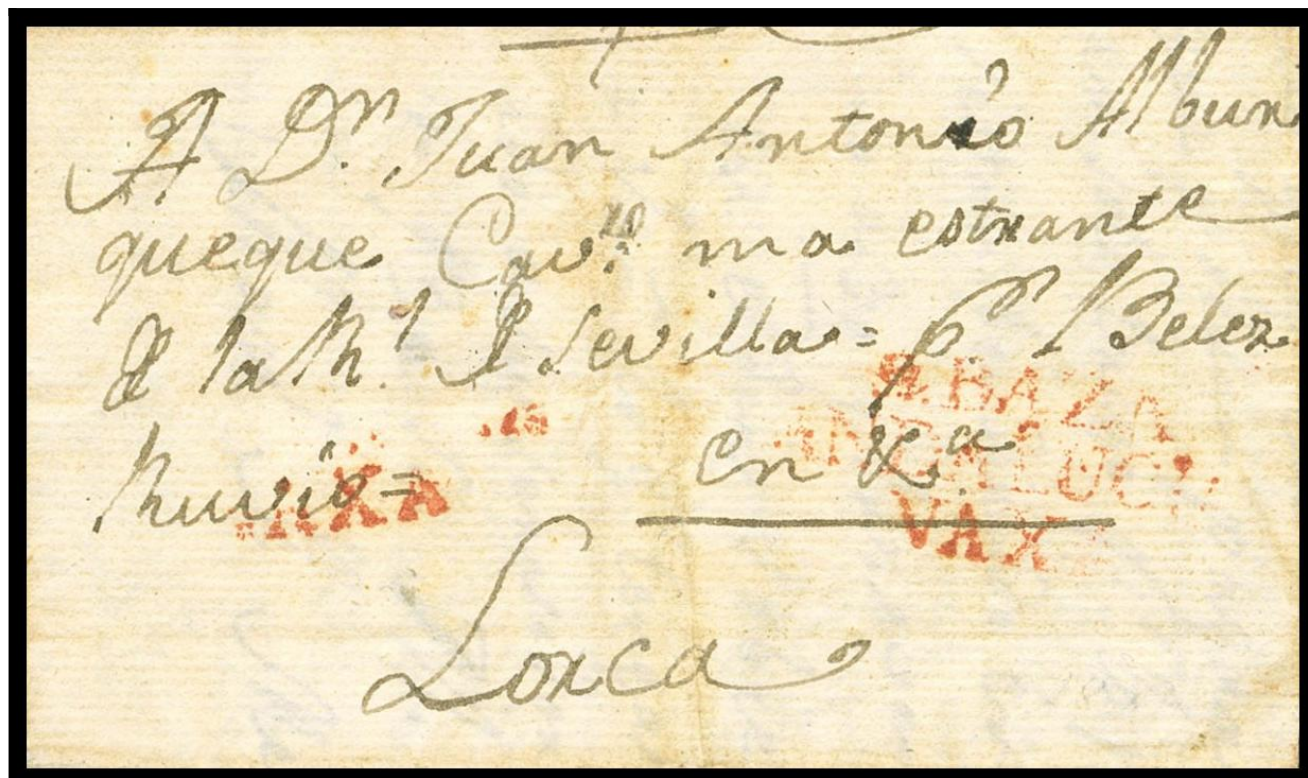 A Dn. Juan Antonio Albur
queque Cavro. maestrante
de la Rl. de Sevilla = Pr Belez
Ruvio =
en &a
Lorca
BAZA
ANDALUCIA
VAXA